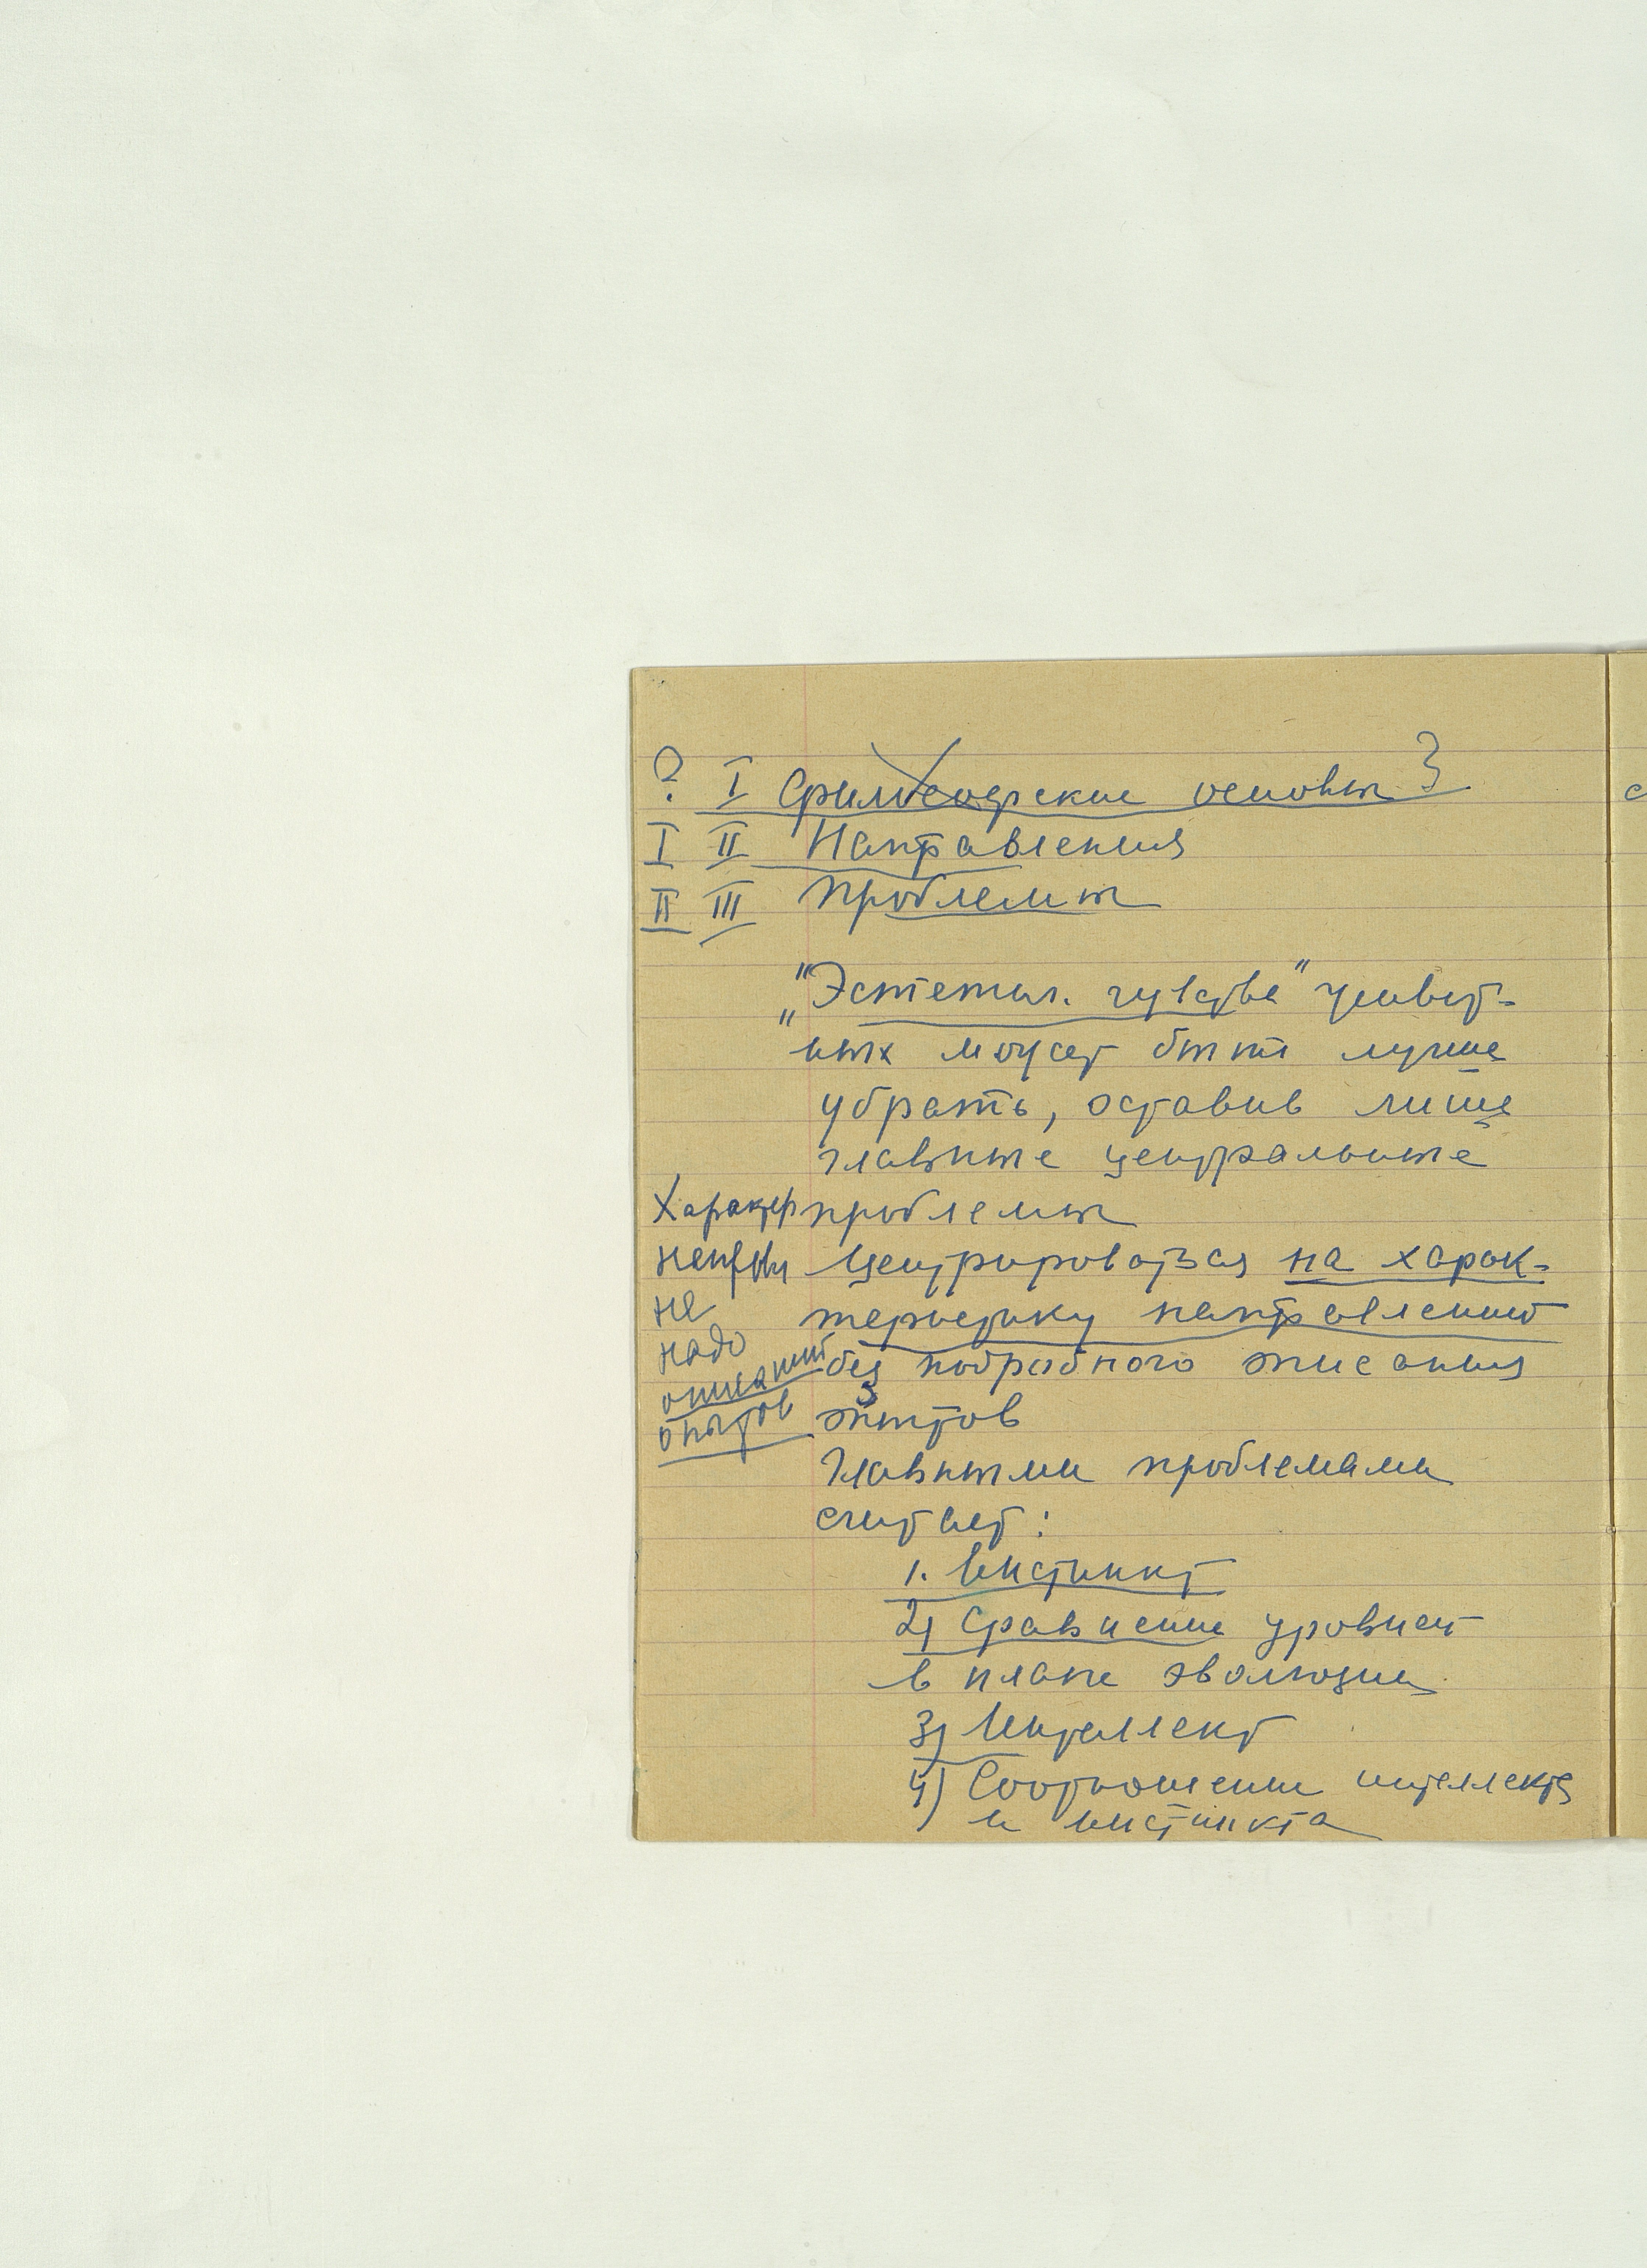 ? I Философские основы?
I II Направления
II III Проблемы
"Эстетич. чувства" живот-
ных может быть лучше
убрать, оставив лишь
главные центральные
проблемы
Характер
направл
не
надо
описаний
опытов
Центрироваться на харак-
теристику направлений
без подробного описания
опытов
Главными проблемами
считает:
1. Инстинкт
2) Сравнение уровней
в плане эволюции
3) Интеллект
4) Соотношение интеллекта
и инстинкта
с